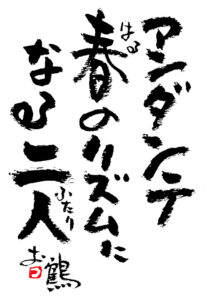 アンダンテ
春のリズムに
はる
なる二人
ふたり
お鶴